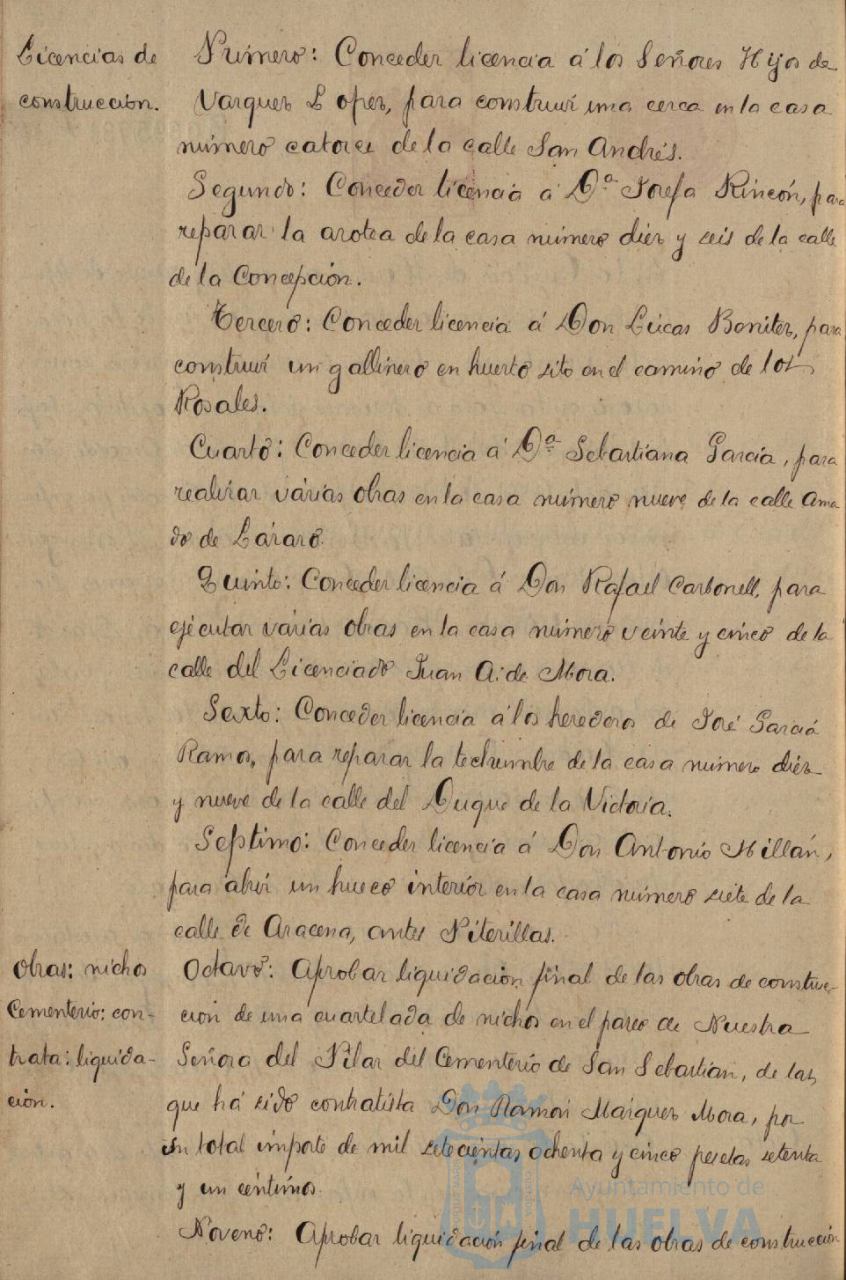 Licencias de
construcción.
Primero: Conceder licencia á los Señores Hijos de
Vazquez Lopez, para construir una cerca en la casa
número catorce de la calle San Andrés.
Segundo: Conceder licencia á Dª Josefa Rincón, para
reparar la azotea de la casa número diez y seis de la calle
de la Concepción.
Tercero: Conceder licencia á Don Lucas Benitez, para
construir un gallinero en huerto sito en el camino de los
Rosales.
Cuarto: Conceder licencia á Dª Sebastiana García, para
realizar várias obras en la casa número nueve de la calle Ama
do de Lázaro.
Quinto: Conceder licencia á Don Rafael Carbonell, para
ejecutar várias obras en la casa número veinte y cinco de la
calle del Licenciado Juan A. de Mora.
Sexto: Conceder licencia á los herederos de José García
Ramos, para reparar la techumbre de la casa número diez
y nueve de la calle del Duque de la Victoria.
Septimo: Conceder licencia á Don Antonio Millán,
para abrir un hueco interior en la casa número siete de la
calle de Aracena, antes Piterillas.
Obras: nichos
Cementerio: con-
trata: liquida-
ción.
Octavo: Aprobar liquidación final de las obras de construc-
ción de una cuartelada de nichos en el paseo de Nuestra
Señora del Pilar del Cementerio de San Sebastian, de las
que há sido contratista Don Ramon Márquez Mora, por
un total importe de mil setecientas ochenta y cinco pesetas setenta
y un centimos.
Noveno: Aprobar liquidación final de las obras de construcción
Ayuntamiento de
HUELVA